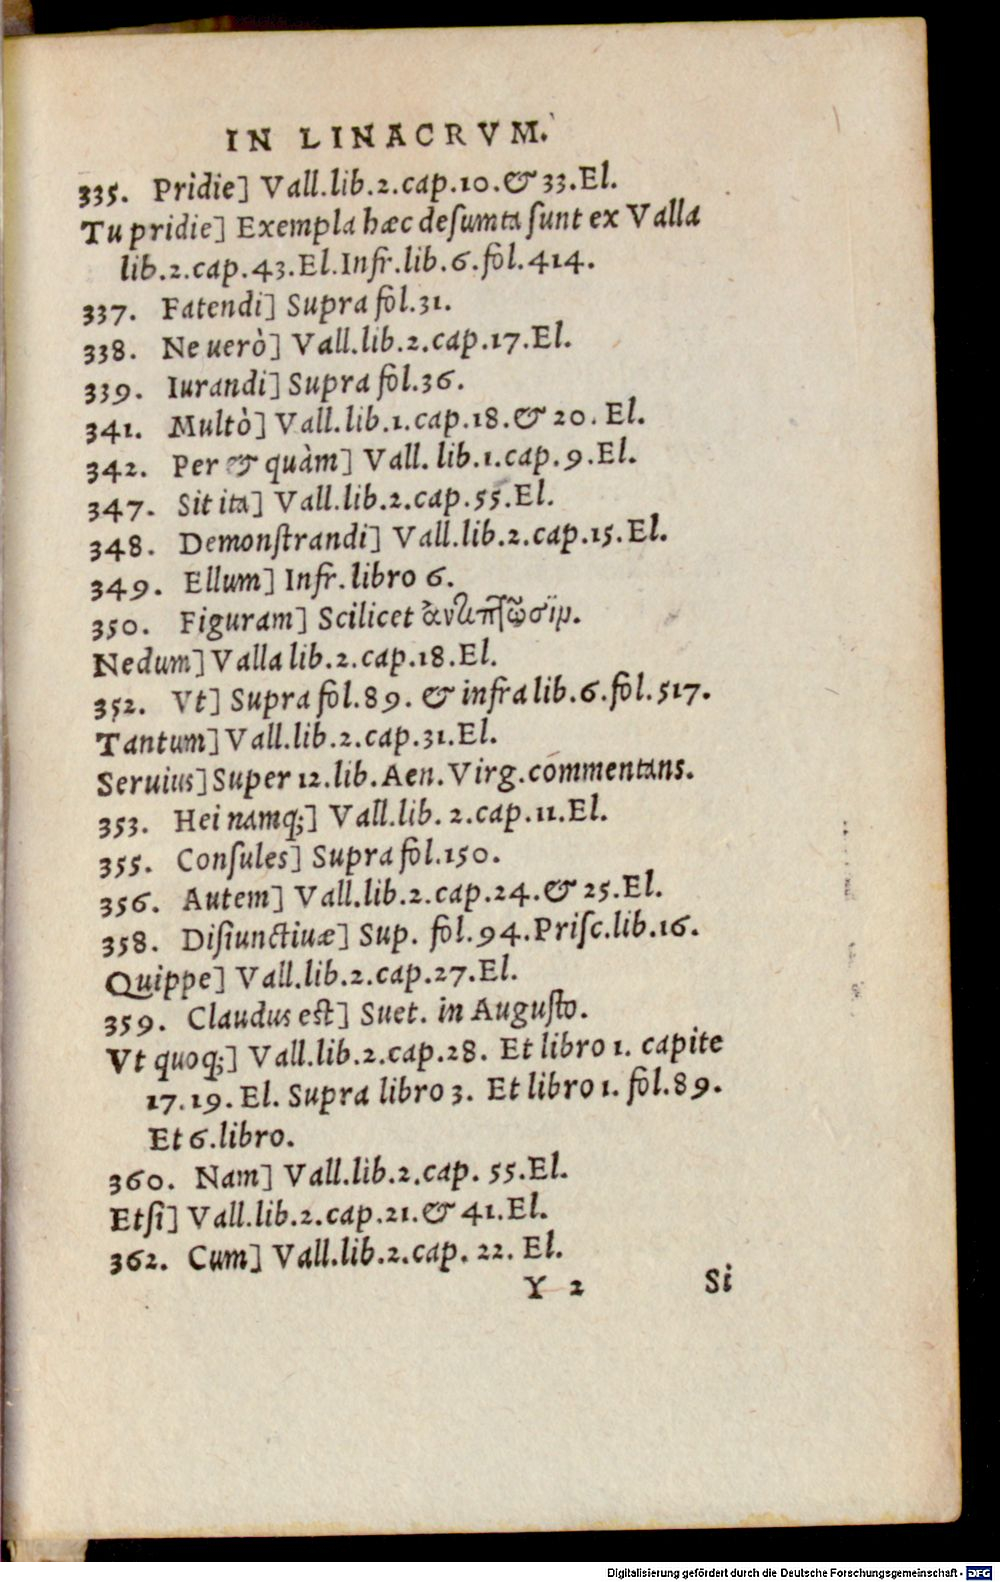 IN LINACRVM.
335. Pridie] Vall.lib.2.cap.10.& 33.El.
Tu pridie] Exempla hæc deſumta ſunt ex Valla
lib.2.cap.43.El.Infr.lib.6.fol.414.
337. Fatendi] Supra fol.31.
338. Ne uerò] Vall.lib.2.cap.17.El.
339. Iurandi] Supra fol.36.
341. Multò] Vall.lib.1.cap.18.& 20. El.
342. Per & quàm] Vall. lib.1.cap.9.El.
347. Sit ita] Vall.lib.2.cap.55.El.
348. Demonſtrandi] Vall.lib.2.cap.15.El.
349. Ellum] Infr. libro 6.
350. Figuram] Scilicet
Nedum] Valla lib.2.cap.18.El.
352. Vt] Supra fol.89. & infra lib.6.fol.517.
Tantum] Vall.lib.2.cap.31.El.
Seruius] Super 12.lib.Aen.Virg.commentans.
353. Hei namq;] Vall.lib. 2.cap.11.El.
355. Conſules] Supra fol.150.
356. Autem] Vall.lib.2.cap.24.& 25.El.
358. Diſiunctiuæ] Sup. fol.94.Priſc.lib.16.
Quippe] Vall.lib.2.cap.27.El.
359. Claudus eſt] Suet. in Auguſto.
Vt quoq;] Vall.lib.2.cap.28. Et libro 1. capite
17.19. El. Supra libro 3. Et libro 1. fol.89.
Et 6.libro.
360. Nam] Vall.lib.2.cap. 55.El.
Etſi] Vall.lib.2.cap.21.& 41.El.
362. Cum] Vall.lib.2.cap. 22. El.
Y 2 Si
Digitalisierung gefördert durch die Deutsche Forschungsgemeinschaft - DFG